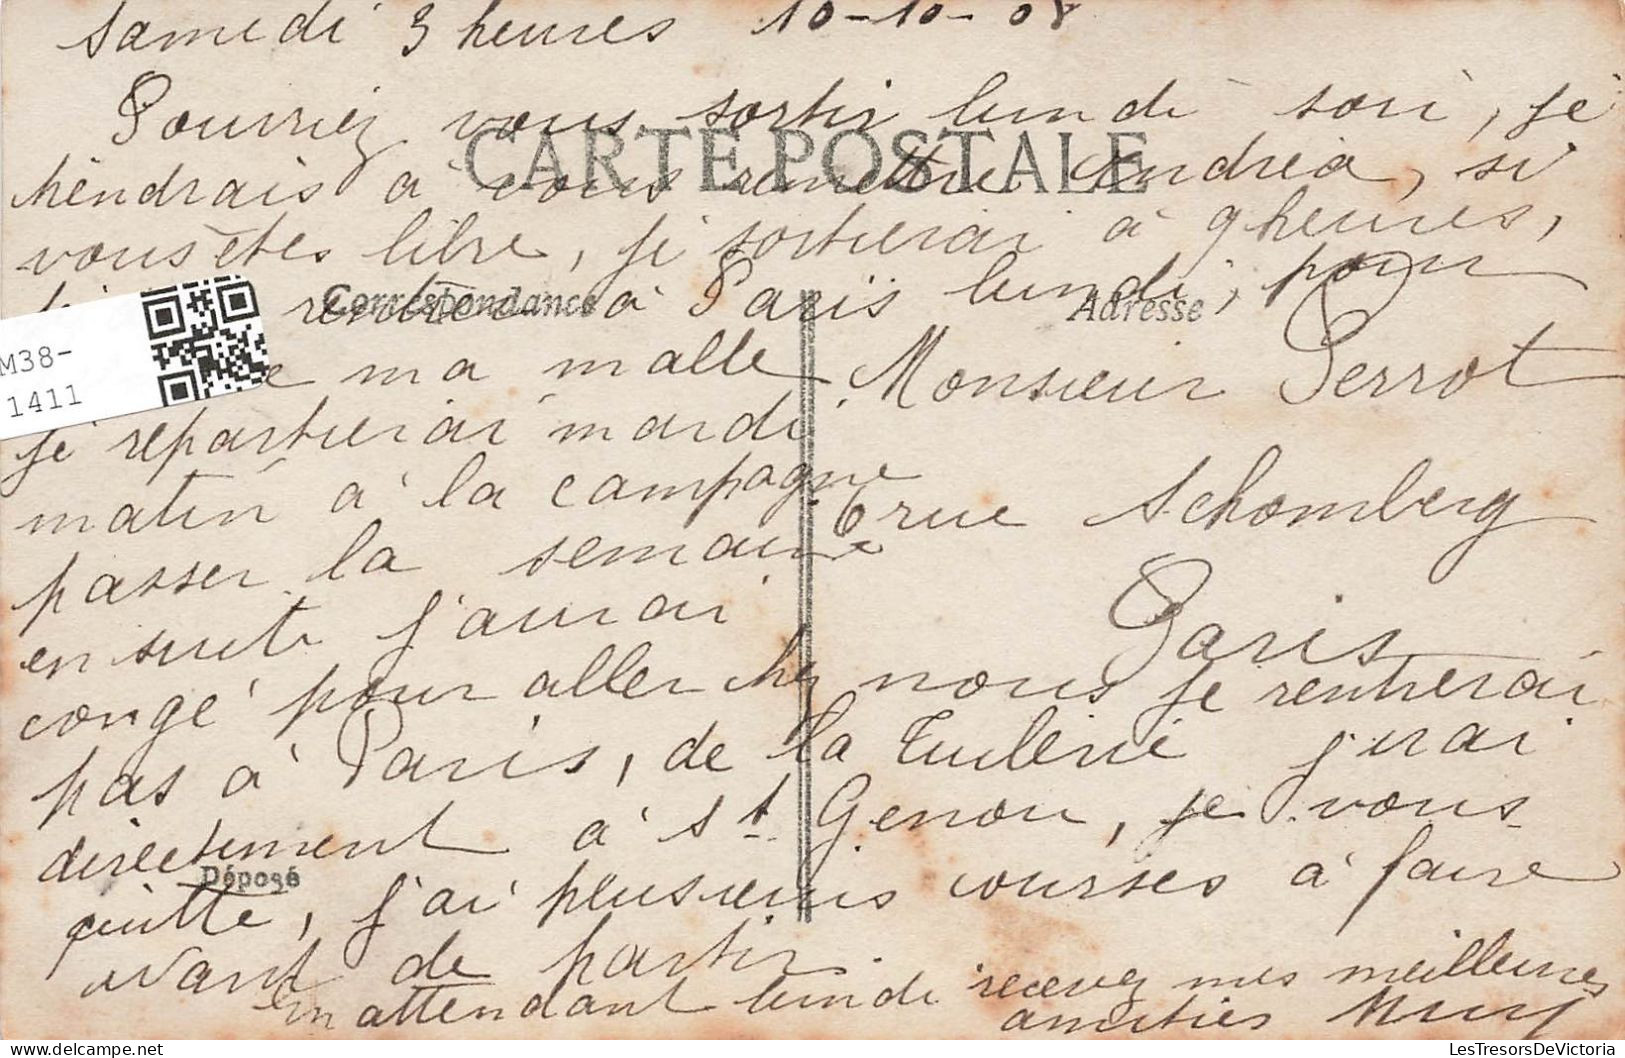 Samedi 3 heures 10-10-08
Pourriez vous sortir lundi soir, je
tiendrais à vous remettre Andréa, si
vous êtes libre, je sortierai à 9 heures,
rentrer à Paris lundi, pour
ma malle
je repartierai mardi
matin à la campagne
passer la semaine
ensuite j'aurai
congé pour aller chez nous je rentrerai
pas à Paris, de la Tuilerie j'irai
directement à St Genou, je vous
quitte, j'ai plusieurs courses à faire
avant de partir.
En attendant lundi recevez mes meilleures
amitiés
CARTE POSTALE
Correspondance
Adresse
Monsieur Perrot
6 rue Schomberg
Paris
Déposé
M38-
1411
LesTresorsDeVictoria